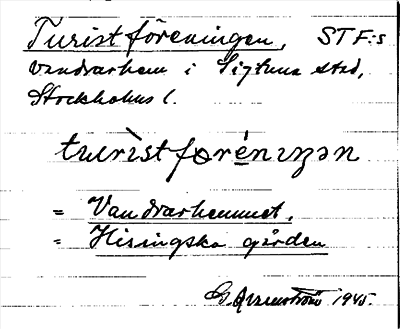 Turistföreningen, STF:s
Vandrarhem i Sigtuna stad,
Stockholms l.
turìstförénıŋən
= Vandrarhemmet,
= Hisingska gården
1945.